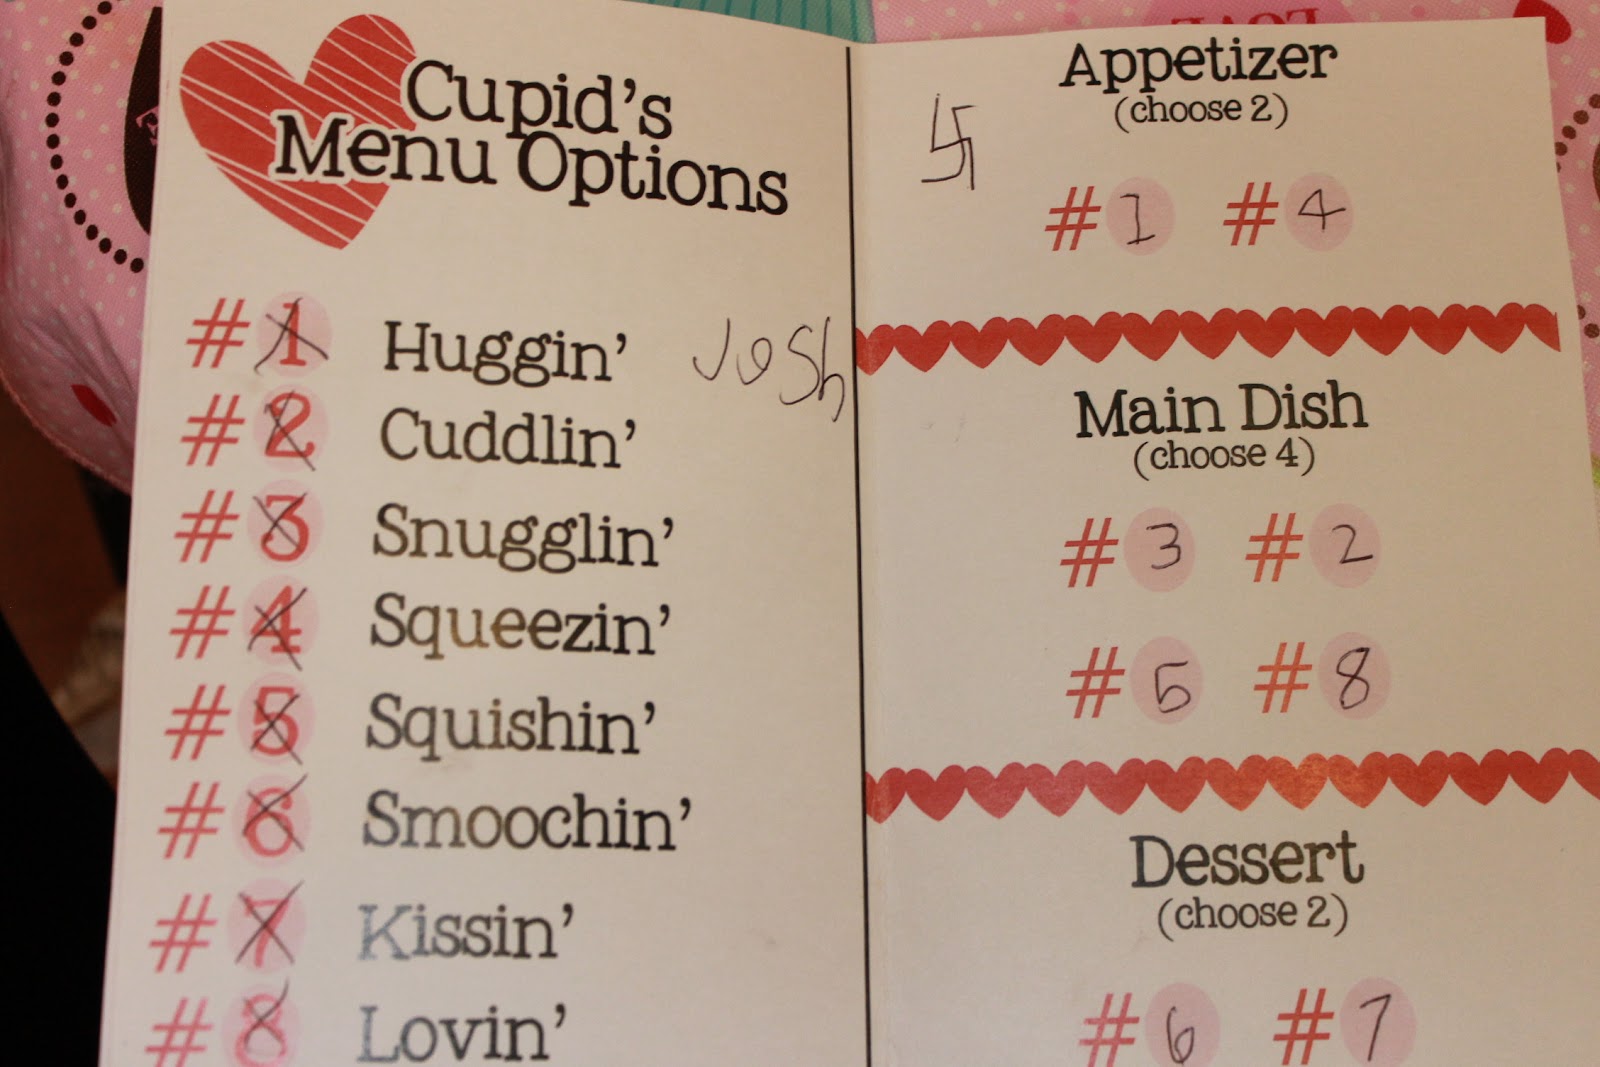 Cupid's
Menu Options
#1 Huggin'
Josh
#2 Cuddlin'
#3 Snugglin'
#4 Squeezin'
#5 Squishin'
#6 Smoochin'
#7 Kissin'
#8 Lovin'
LOVE
Appetizer
(choose 2)
#1 #4
Main Dish
(choose 4)
#3 #2
#5 #8
Dessert
(choose 2)
#6 #7